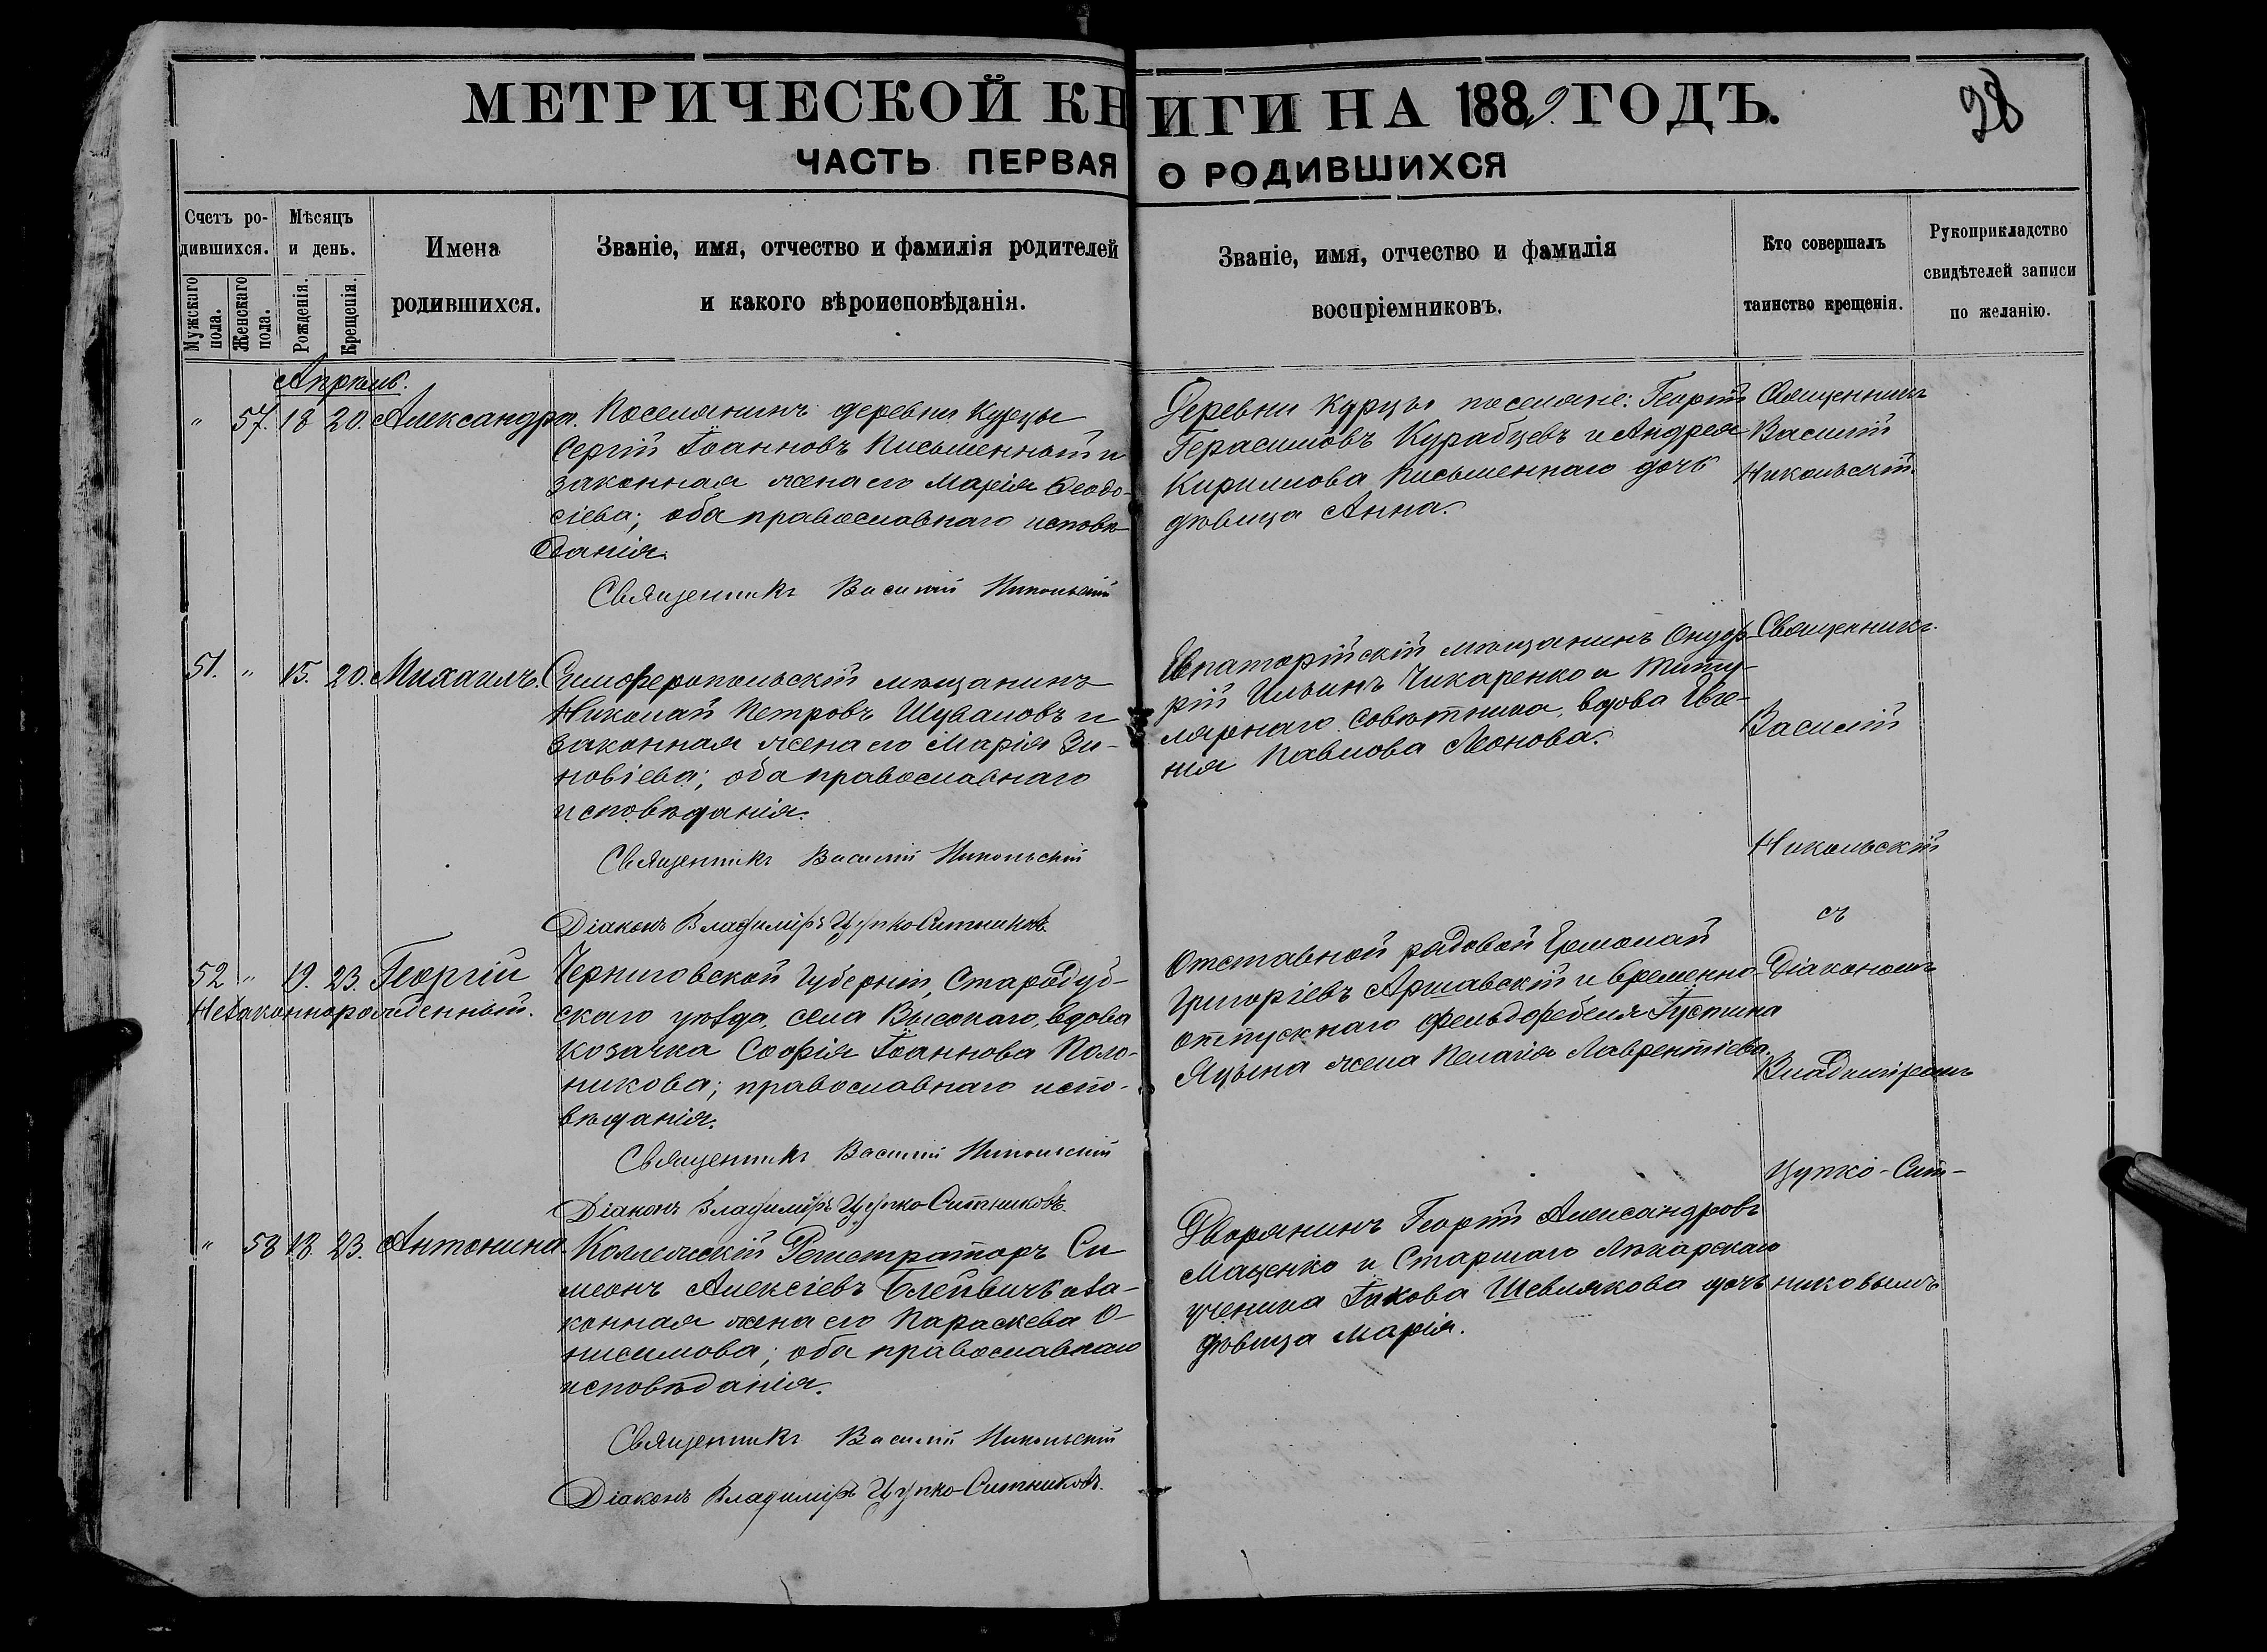 МЕТРИЧЕСКОЙ КНИГИ НА 1889 ГОДЪ.
28
ЧАСТЬ ПЕРВАЯ О РОДИВШИХСЯ
Счетъ ро-
дившихся.
Мужскаго пола.
Женскаго пола.
Мѣсяцъ
и день.
Рожденія.
Крещенія.
Имена
родившихся.
Званіе, имя, отчество и фамилія родителей
и какого вѣроисповѣданія.
Званіе, имя, отчество и фамилія
воспріемниковъ.
Кто совершалъ
таинство крещенія.
Рукоприкладство
свидѣтелей записи
по желанію.
Апрѣль.
" 57. 18 20. Александра. Поселянинъ деревни Курцы
Сергій Іоанновъ Письменный и
законная жена его Марія Ѳеодо-
сіева; оба православнаго исповѣ-
данія.
Священникъ Василій Никольскій
Деревни Курцы поселяне: Георгій
Герасимовъ Курабцевъ и Андрея
Кириллова Письменнаго дочь
дѣвица Анна.
Священникъ
Василій
Никольскій.
51. " 15. 20. Михаилъ. Симферопольскій мѣщанинъ
Николай Петровъ Шуваловъ и
законная жена его Марія Зи-
новіева; оба православнаго
исповѣданія.
Священникъ Василій Никольскій
Діаконъ Владиміръ Цупко-Ситниковъ.
Евпаторійскій мѣщанинъ Онуф-
рій Ильинъ Чикаренко и Титу-
лярнаго Совѣтника, вдова Евге-
нія Павлова Леонова.
Священникъ
Василій
Никольскій
съ
Діакономъ
Владиміромъ
Цупко-Сит-
никовымъ
52 " 19. 23. Георгій
Незаконнорожденный.
Черниговской Губерніи, Стародуб-
скаго уѣзда, села Высокаго, вдова
козачка Софія Іоаннова Поло-
никова; православнаго испо-
вѣданія.
Священникъ Василій Никольскій
Діаконъ Владиміръ Цупко-Ситниковъ.
Отставной рядовой Ермолай
Григоріевъ Аршавскій и временно-
отпускнаго фельдфебеля Густина
Яцына жена Пелагія Лаврентіева.
" 58 18. 23. Антонина Коллежскій Регистраторъ Си
меонъ Алексіевъ Блейвичъ и за-
конная жена его Параскева О-
нисимова; оба православнаго
исповѣданія.
Священникъ Василій Никольскій
Діаконъ Владиміръ Цупко-Ситниковъ.
Дворянинъ Георгій Александровъ
Маценко и Старшаго Лѣкарскаго
ученика Іакова Шевлякова дочь
дѣвица Марія.